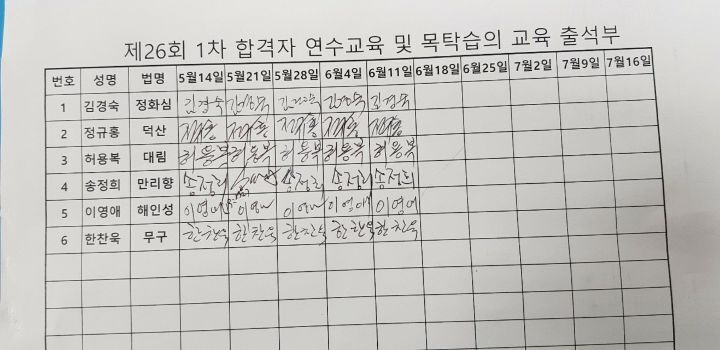 제26회 1차 합격자 연수교육 및 목탁습의 교육 출석부
번호 성명 법명 5월14일 5월21일 5월28일 6월4일 6월11일 6월18일 6월25일 7월2일 7월9일 7월16일
1 김경숙 정화심 김경숙 김경숙 김경숙 김경숙 김경숙
2 정규홍 덕산
3 허용복 대림 허용복 허용복 허용복 허용복 허용복
4 송정희 만리향 송정희 송정희 송정희 송정희
5 이영애 해인성 이영애 이영애 이영애 이영애 이영애
6 한찬욱 무구 한찬욱 한찬욱 한찬욱 한찬욱 한찬욱